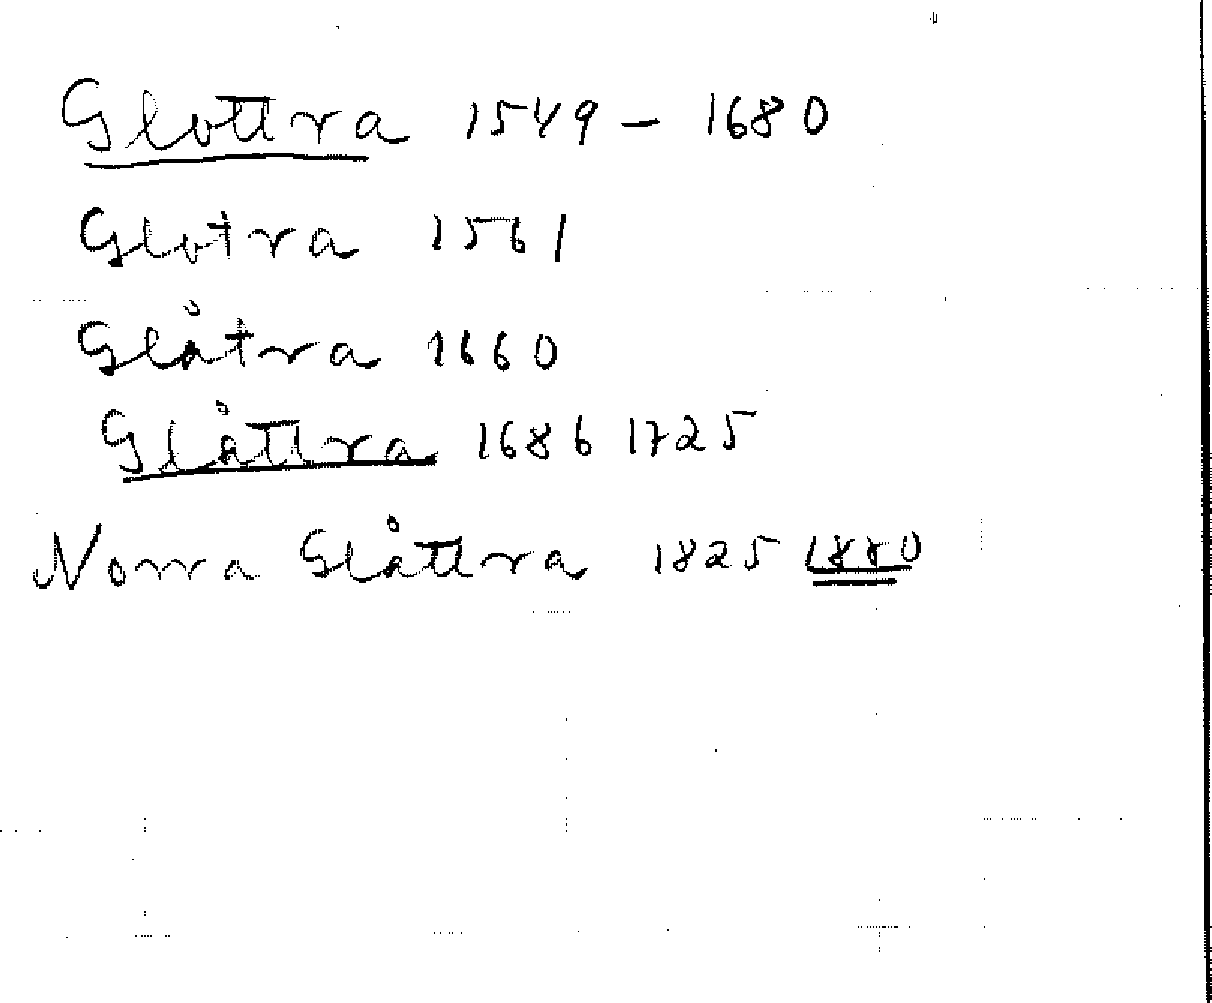 Glottra 1549 - 1680
Glotra 1561
Glåtra 1660
Glåttra 1686 1725
Norra Glåttra 1825 1880